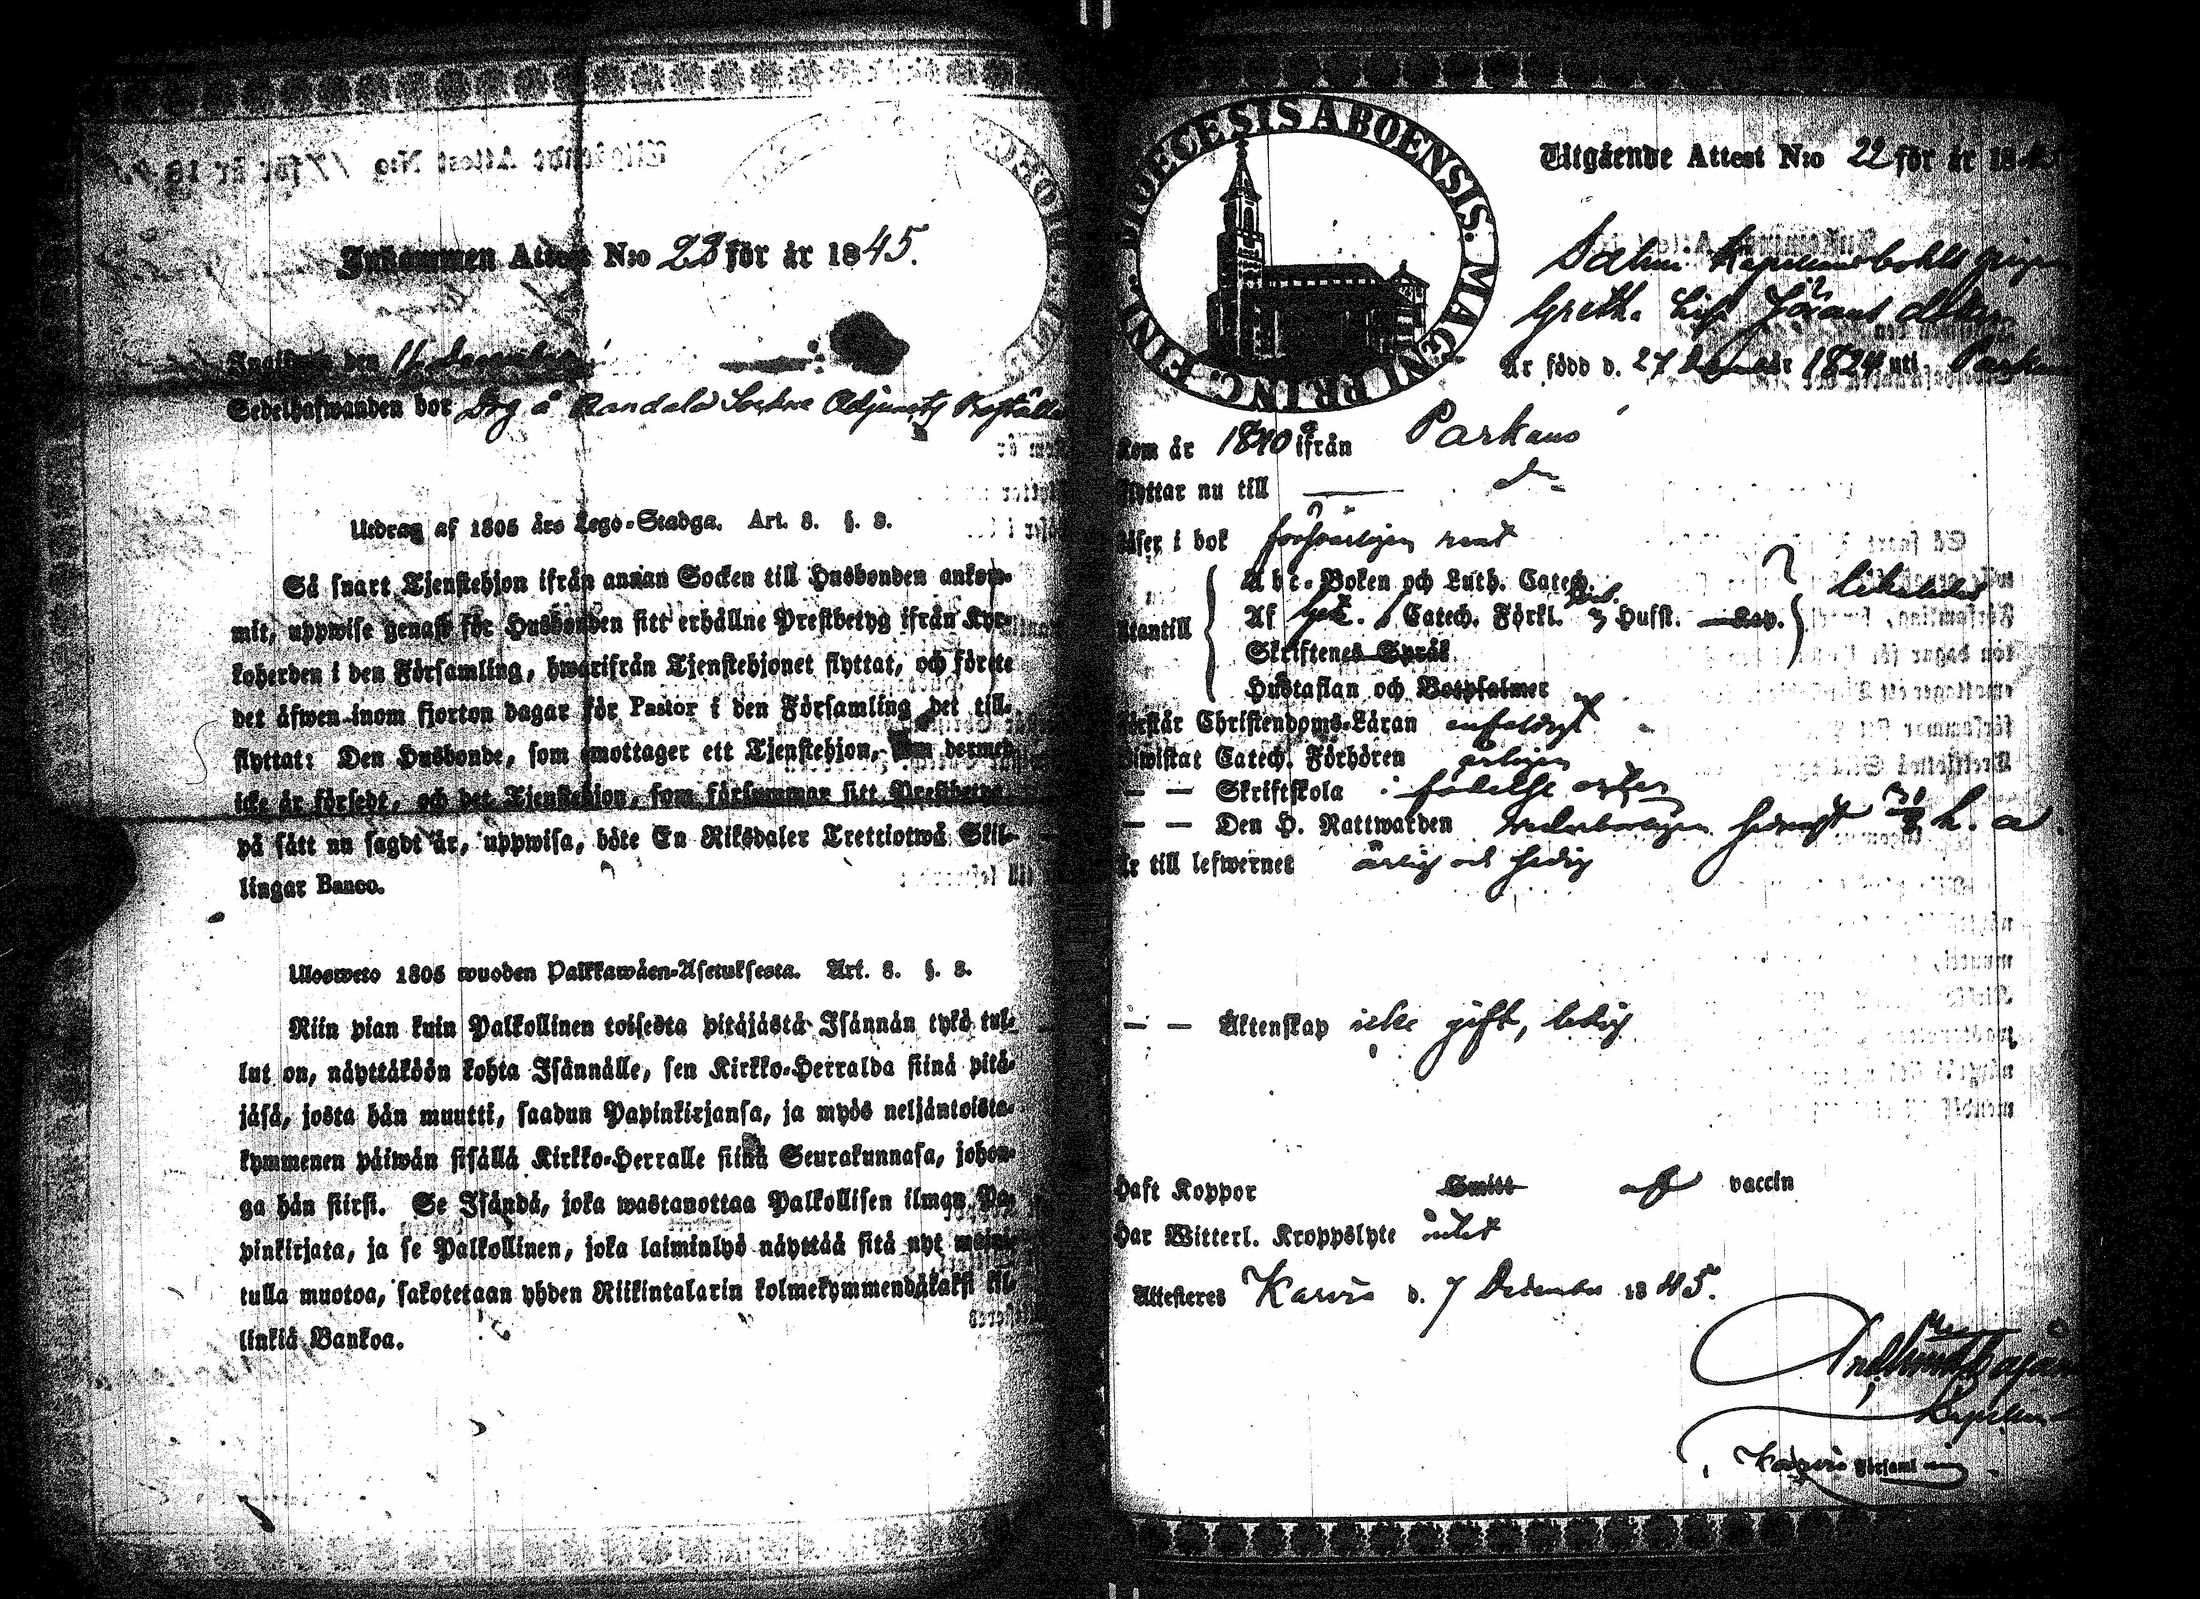 Inkommen Attest N:o 23 för år 1845.
den 11 December
Sedelhafwanden bor Drg å Sockne Adjuncts
Utdrag af 1805 års Lego-Stadga. Art. 8. §. 2.
Så snart Tjenstehjon ifrån annan Socken till Husbonden ankom-
mit, uppwise genast för Husbonden sitt erhållne Prestbetyg ifrån Kyr-
koherden i den Församling, hwarifrån Tjenstehjonet flyttat, och förete
det äfwen inom fjorton dagar för Pastor i den Församling det till-
flyttat: Den Husbonde, som emottager ett Tjenstehjon, som dermed
icke är försedt, och det Tjenstehjon, som försummar sitt Prestbetyg
på sätt nu sagdt är, uppwisa, böte En Riksdaler Trettiotwå Skil-
lingar Banco.
Ulosweto 1805 wuoden Palkkawäen-Asetuksesta. Art. 8. §. 2.
Niin pian kuin Palkollinen toisesta pitäjästä Isännän tykö tul-
lut on, näyttäköön kohta Isännälle, sen Kirkko-Herralda siinä pitä-
jäsä, josta hän muutti, saadun Papinkirjansa, ja myös neljäntoista-
kymmenen päiwän sisällä Kirkko-Herralle siinä Seurakunnasa, johon-
ga hän siirsi. Se Isändä, joka wastanottaa Palkollisen ilman Pa-
pinkirjata, ja se Palkollinen, joka laiminlyö näyttää sitä nyt maini-
tulla muotoa, sakotetaan yhden Riikintalarin kolmekymmendäkaksi kil-
linkiä Bankoa.
DIOECESIS ABOENSIS. MAGNI PRINC. FINL.
Utgående Attest N:o 22 för år 1845
Salmi Kapellansbohls pigan
Greth. Lisa Jörans dotter
Är född d. 27 1824 uti Parkano
Kom år 1840 ifrån Parkano
Flyttar nu till — d:o
Läser i bok försvarligen rent
Utantill
Abc-Boken och Luth. Catech.
Af Catech. Förkl. Husst. Kap.
Skriftenes Språk
Hustaflan och Botpsalmer
Förstår Christendoms-Läran enfaldigt
Biwistat Catech. Förhören årligen
— — Skriftskola i födelse orten
— — Den H. Nattwarden senast h. a.
Är till lefwernet ärlig och sedig
— — Äktenskap icke gift, ledig
Haft Koppor Smitt vaccin
Har Witterl. Kroppslyte intet
Attesteras Karvia d. 7 December 1845.
Kapellan
Karvia Församl